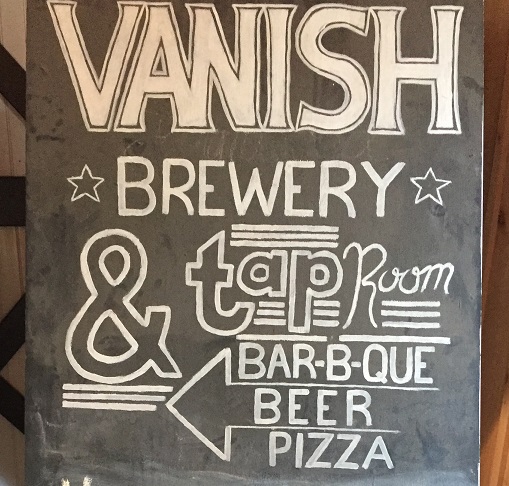 VANISH
BREWERY
& tap Room
BAR-B-QUE
BEER
PIZZA